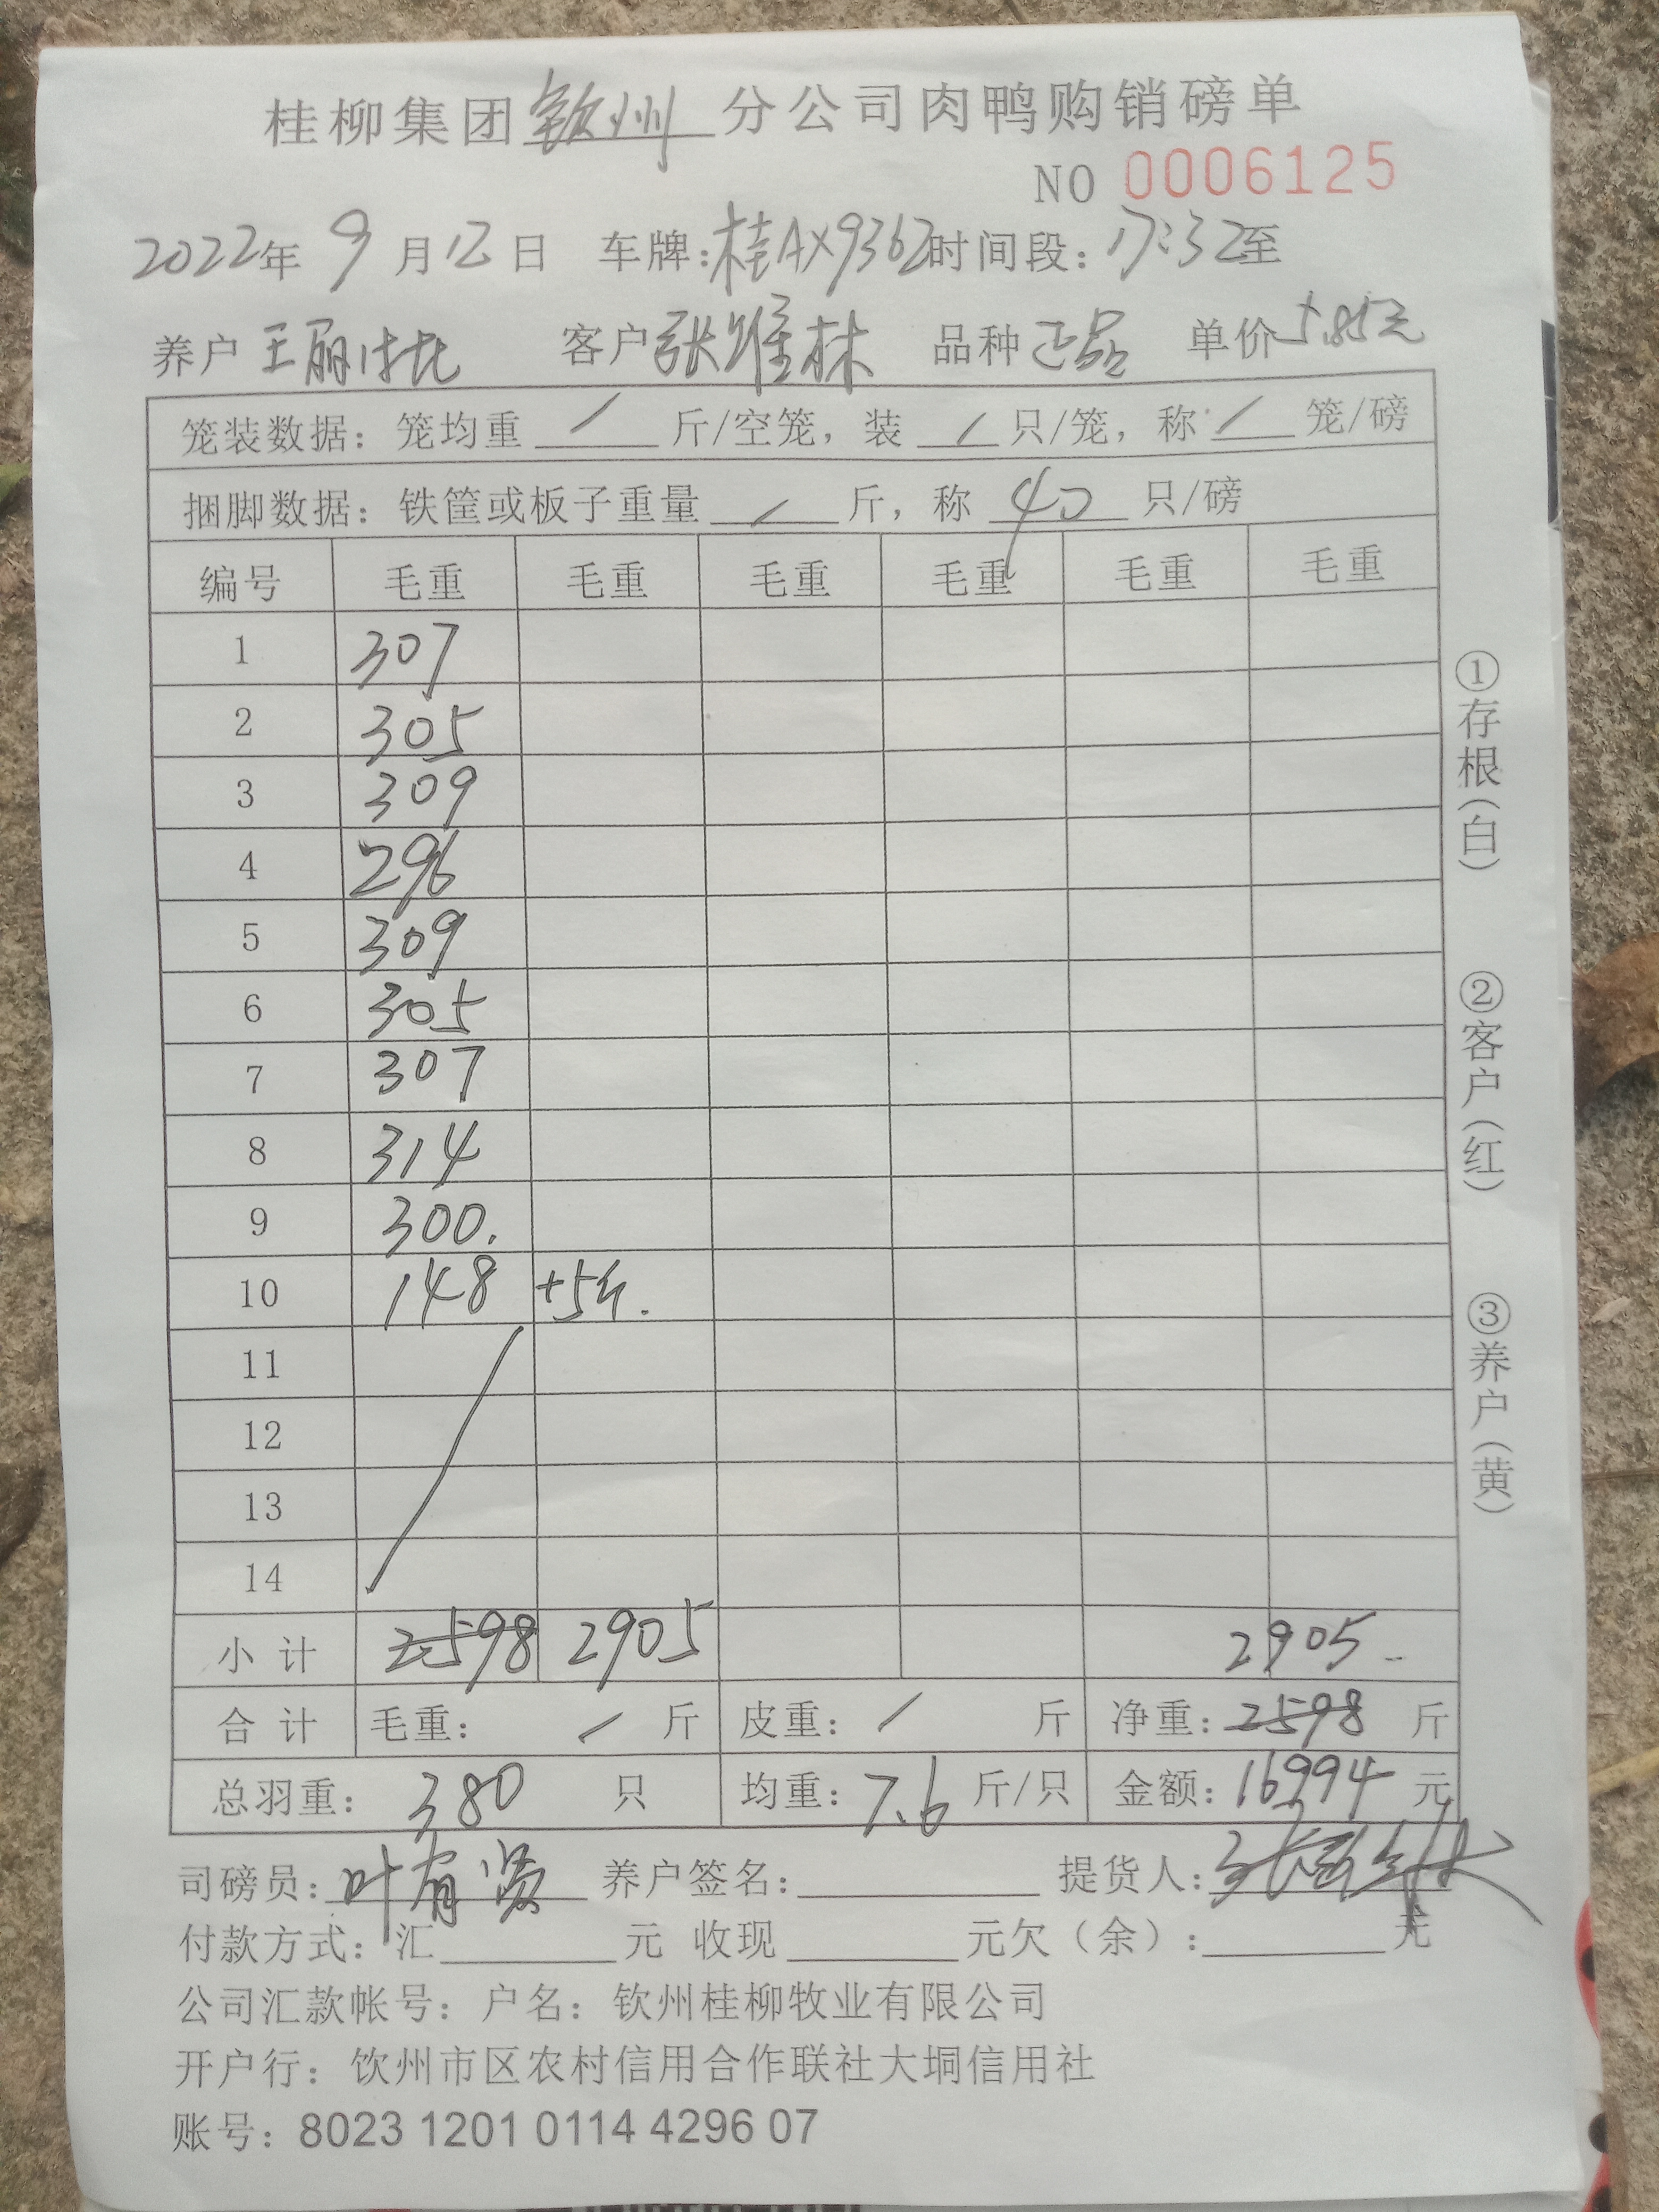 桂柳集团钦州分公司肉鸭购销磅单
NO 0006125
2022年9月12日 车牌:桂AX9362时间段:17:32至
养户王丽 客户张维林 品种正品 单价5.85元
笼装数据:笼均重 / 斤/空笼,装 / 只/笼,称 / 笼/磅
捆脚数据:铁筐或板子重量 / 斤,称 40 只/磅
编号 毛重 毛重 毛重 毛重 毛重 毛重
1 307
2 305
3 309
4 296
5 309
6 305
7 307
8 314
9 300.
10 148 +5斤.
11
12
13
14
小计 2598 2905 2905
合计 毛重: / 斤 皮重: / 斤 净重:2598 斤
总羽重: 380 只 均重:7.6斤/只 金额:16994元
司磅员:叶有贤 养户签名: 提货人:
付款方式:汇 元 收现 元欠(余): 元
公司汇款帐号:户名:钦州桂柳牧业有限公司
开户行:饮州市区农村信用合作联社大垌信用社
账号:8023 1201 0114 4296 07
①存根(白)
②客户(红)
③养户(黄)